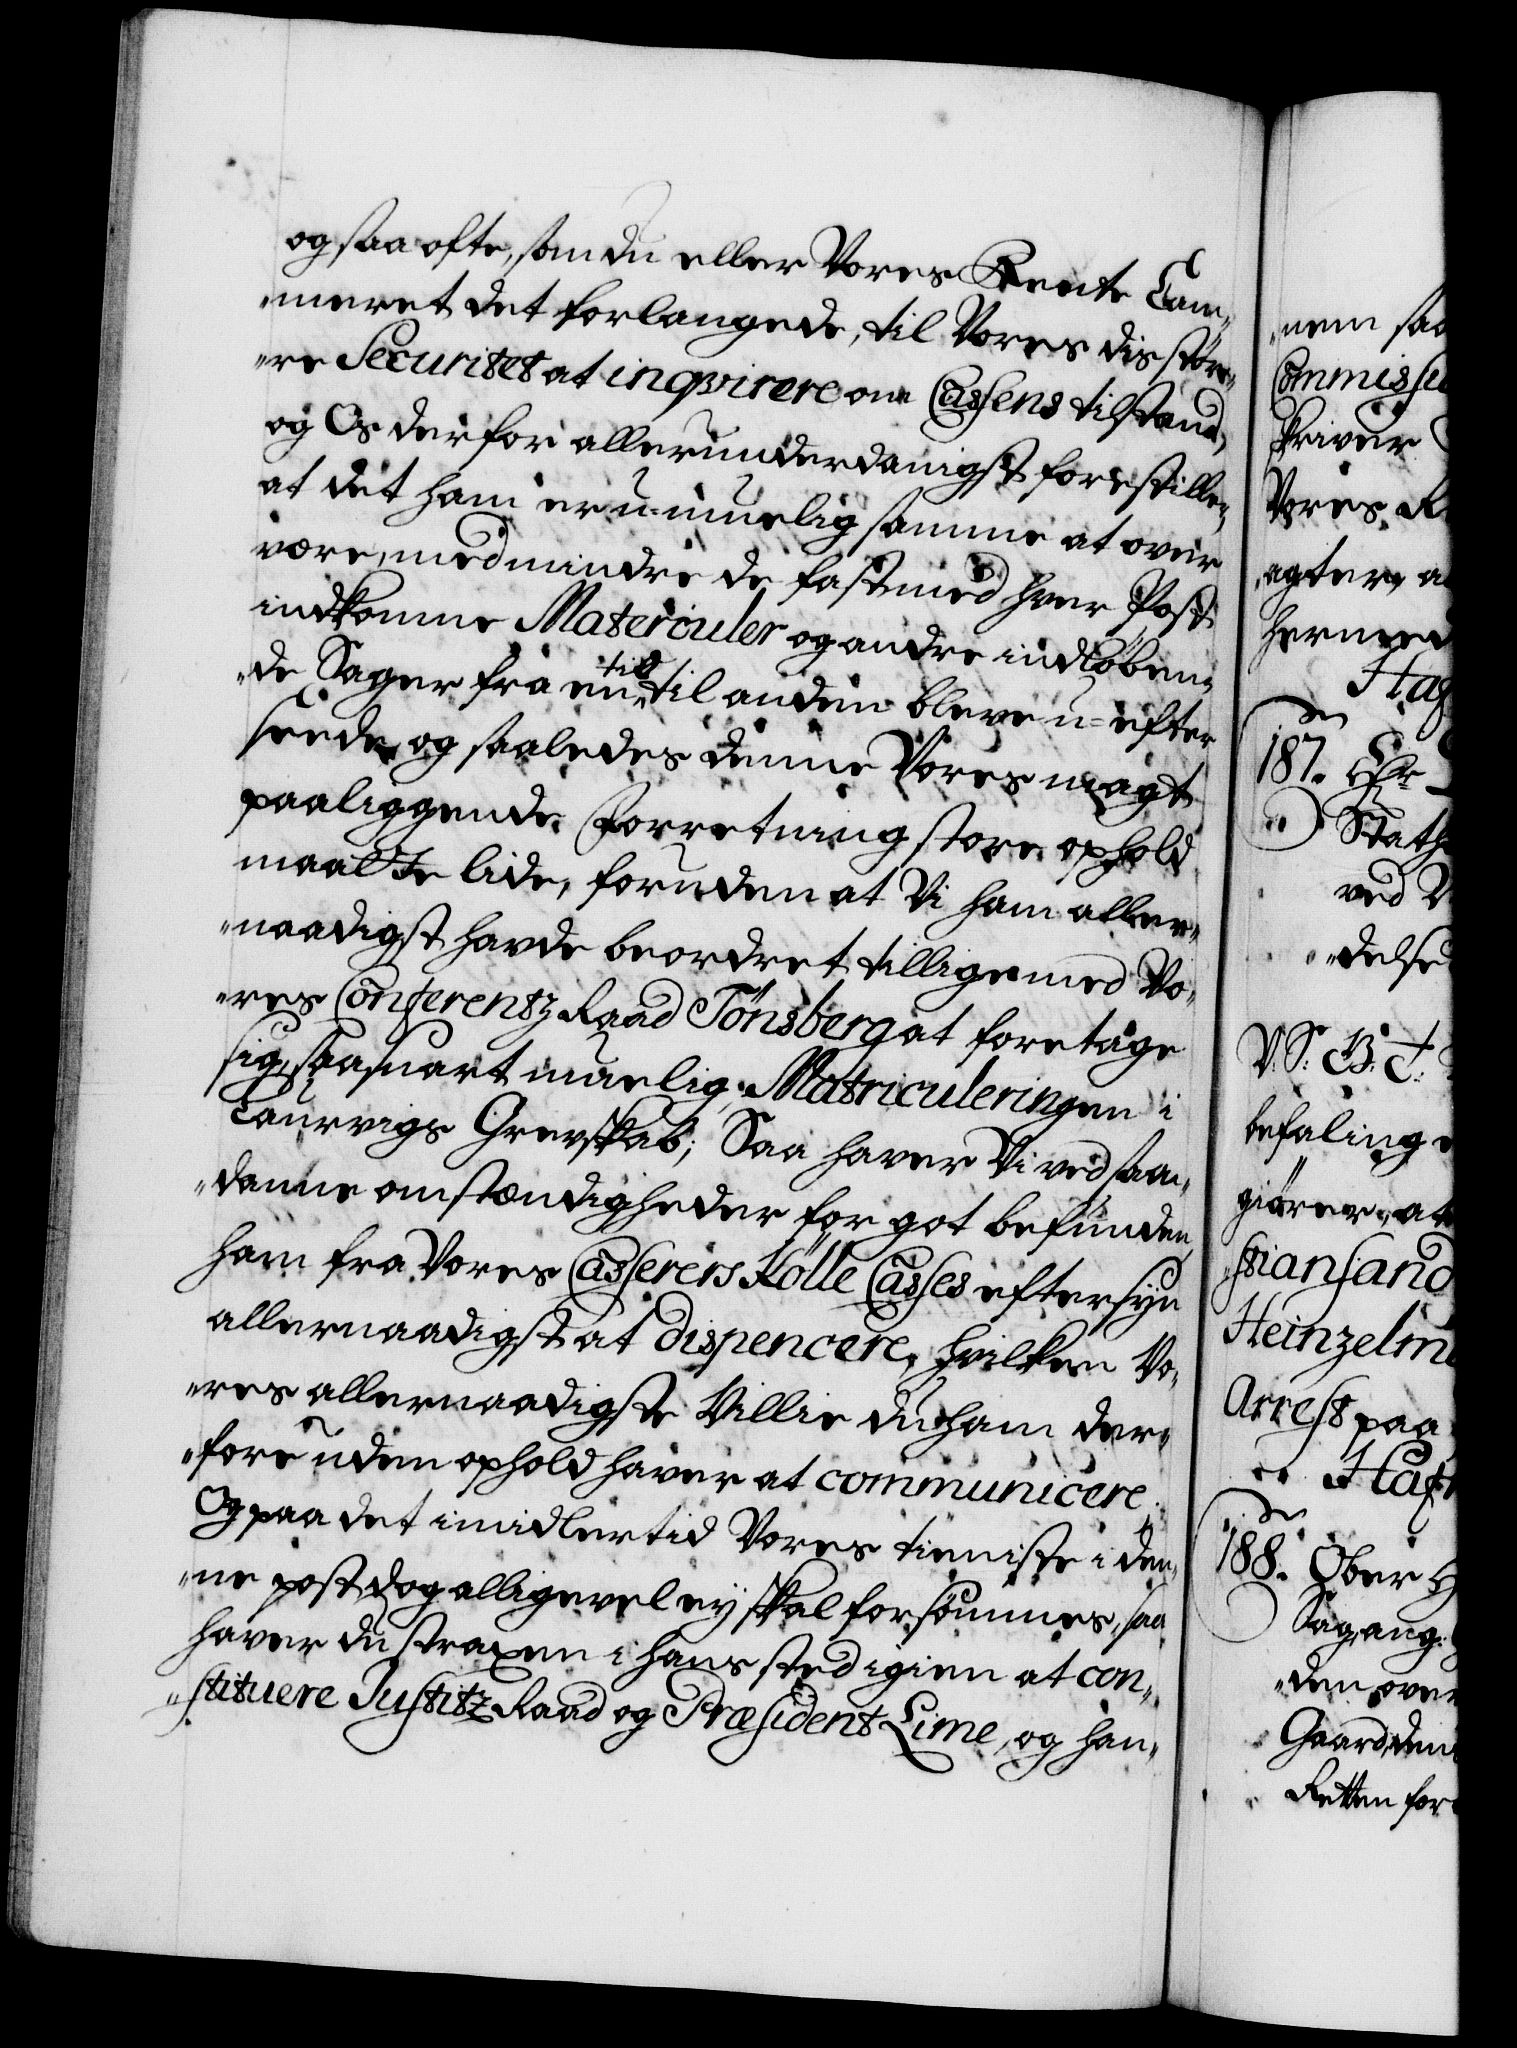 og saa ofte, som du eller Vores Rente Cam¬
meret det forlangede, til Vores dis støre¬
re Securitet at inqvirere om Cassens tilstand,
og Os derfor allerunderdanigst forestiller,
at det ham er u-muelig samme at over
være, med mindre de fast med hver Post
indkomne Materiuler og andre indløben¬
de Sager fra en tid til anden bleve u-efter
seede, og saaledes denne Vores magt
paaliggende Forretning store ophold
maatte lide, foruden at Vi ham aller¬
naadigst havde beordret tillige med Vo¬
res Conferentz Raad Tønsberg at foretage
sig, saasnart muelig, Matriculeringen i
Laurvigs Grevskab; Saa haver Vi ved saa¬
danne omstændigheder for got befunden,
ham fra Vores Casserers Kølle Casses eftersyn
allernaadigst at dispencere, hvilken Vo¬
res allernaadigste Villie du ham der¬
fore uden ophold haver at communicere.
Og paa det imidlertid Vores tieniste i den¬
ne post dog alligevel ey skal forsømmes, saa
haver du straxen i hans sted igien at con¬
stituere Justitz Raad og Præsident Lime, og han¬
nem saa
Commissi
skriver
Vores R
agter, a
hermed
Haf
187. Hr
Stath
ved V
delse
V. S. G. B. T.
befaling
giører, at
stiansand
Heinzelm
Arrest paa
Haf
188. Ober H
Sag, ang:
den over
Gaard, den
Retten for